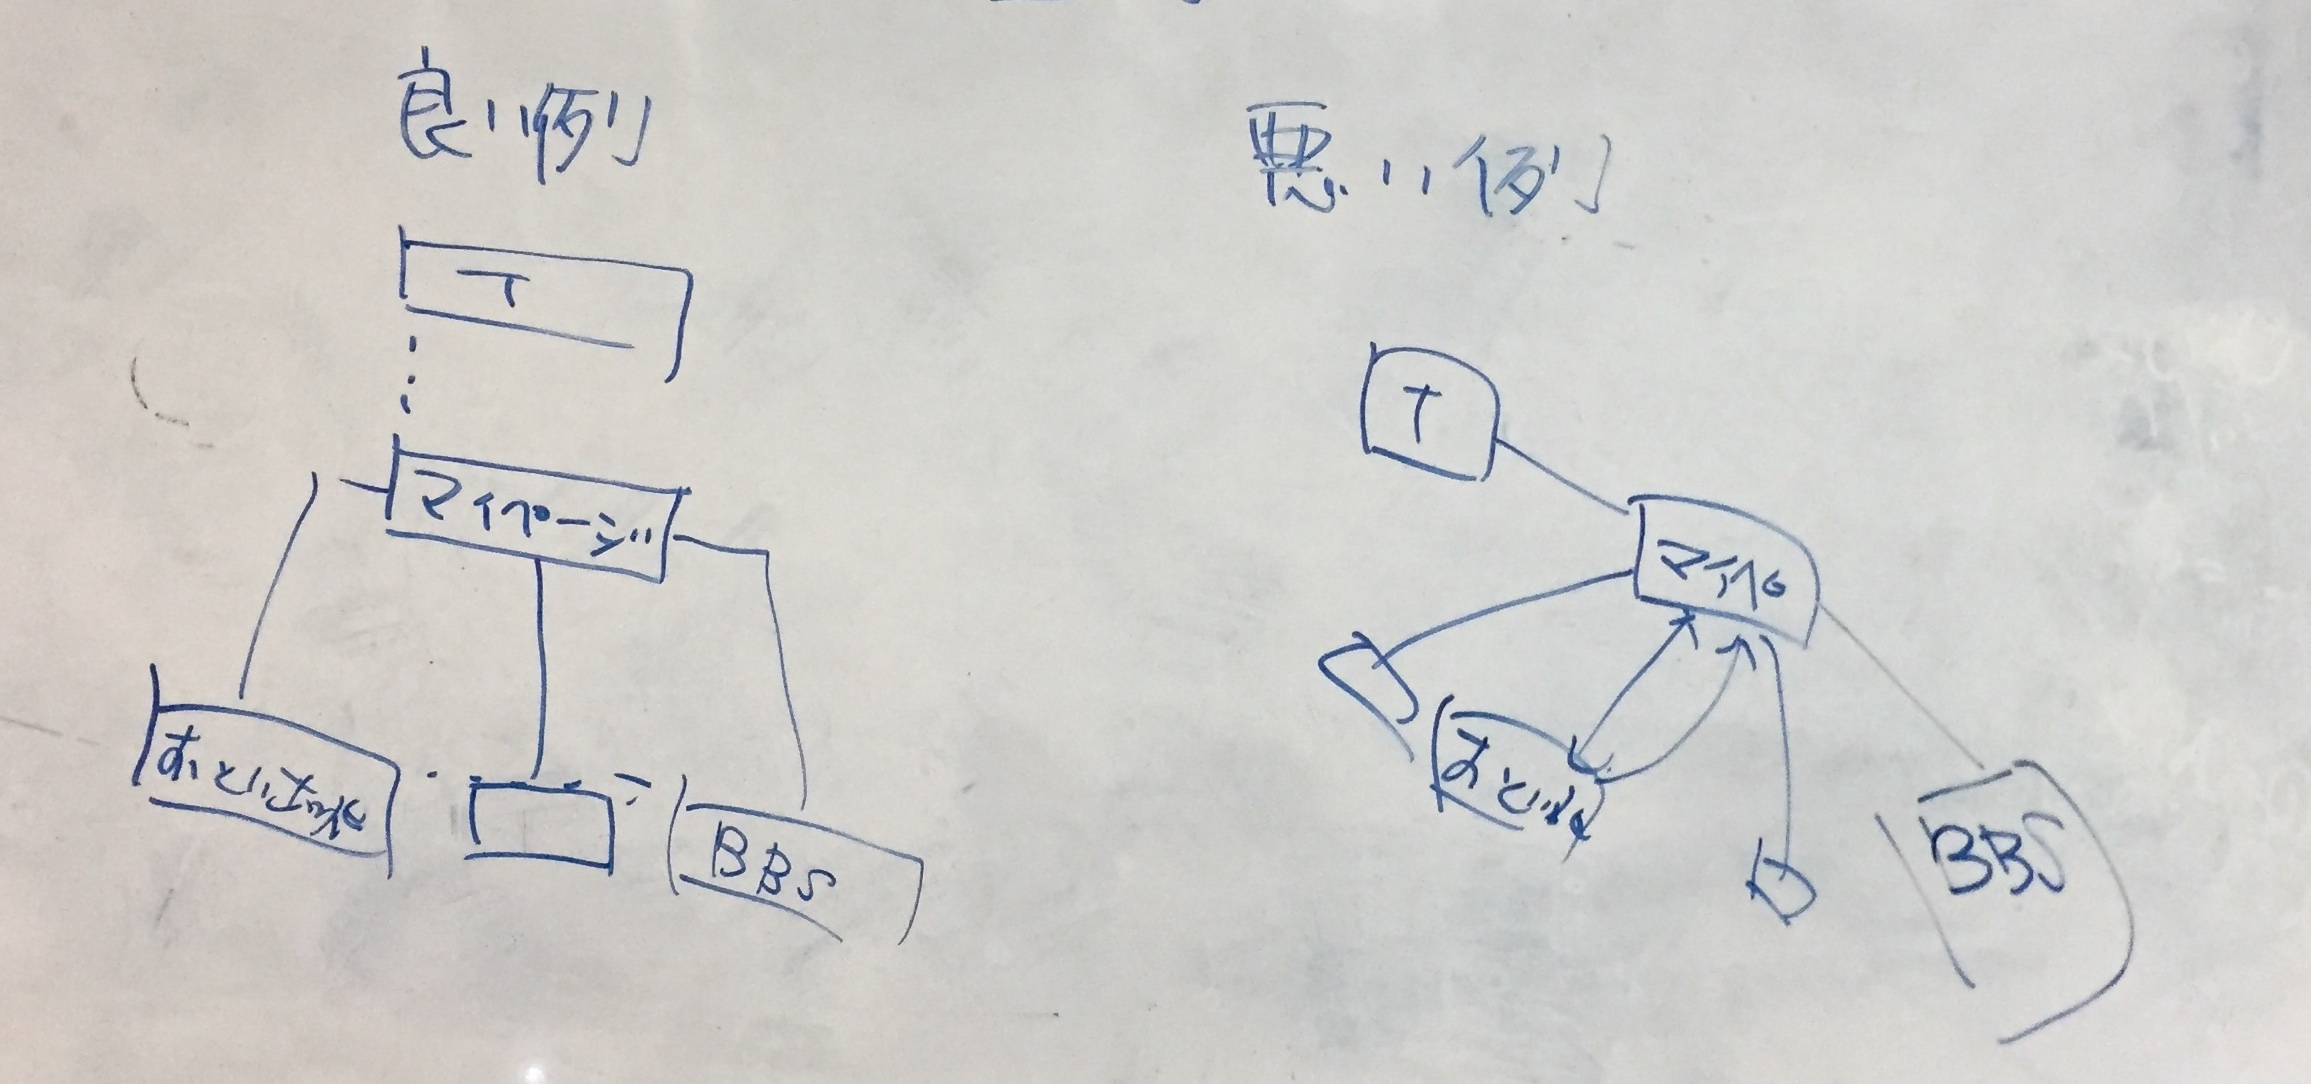 良い例
T
マイページ
おといあわせ
BBS
悪い例
T
マイペ
BBS